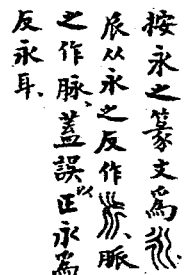 按永之篆文為永
𠂢从永之反作𠂢、脈
之作脉、蓋誤以正永為
反永耳、